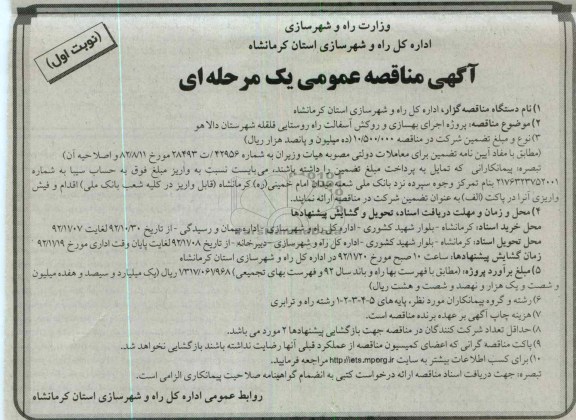 وزارت راه و شهرسازی
اداره کل راه و شهرسازی استان کرمانشاه
(نوبت اول)
آگهی مناقصه عمومی یک مرحله ای
۱) نام دستگاه مناقصه گزار، اداره کل راه و شهرسازی استان کرمانشاه
۲) موضوع مناقصه: پروژه اجرای بهسازی و روکش آسفالت راه روستایی قلقله شهرستان دالاهو
۳) نوع و مبلغ تضمین شرکت در مناقصه ۱۰/۵۰۰/۰۰۰ (ده میلیون و پانصد هزار ریال)
(مطابق با مفاد آیین نامه تضمین برای معاملات دولتی مصوبه هیات وزیران به شماره ۴۲۹۵۶/ت ۲۸۴۹۳ مورخ ۸۲/۸/۱۱ و اصلاحیه آن)
تبصره: پیمانکارانی که تمایل به پرداخت مبلغ تضمین را داشته باشند، می‌بایست نسبت به واریز مبلغ فوق به حساب سیبا به شماره
۲۱۷۶۴۴۳۷۵۲۰۰۱ بنام تمرکز وجوه سپرده نزد بانک ملی شعبه میدان امام خمینی(ره) کرمانشاه (قابل واریز در کلیه شعب بانک ملی) اقدام و فیش
واریزی آنرا در پاکت (الف) به عنوان تضمین شرکت در مناقصه ارائه نمایند.
۴) محل و زمان و مهلت دریافت اسناد، تحویل و گشایش پیشنهادها
محل خرید اسناد: کرمانشاه - بلوار شهید کشوری - اداره کل راه و شهرسازی - اداره پیمان و رسیدگی - از تاریخ ۹۲/۱۰/۳۰ لغایت ۹۲/۱۱/۰۷
محل تحویل اسناد: کرمانشاه - بلوار شهید کشوری - اداره کل راه و شهرسازی - دبیرخانه - از تاریخ ۹۲/۱۱/۰۸ لغایت پایان وقت اداری مورخ ۹۲/۱۱/۱۹
زمان گشایش پیشنهادها: ساعت ۱۰ صبح مورخ ۹۲/۱۱/۲۰ در اداره کل راه و شهرسازی استان کرمانشاه
۵) مبلغ برآورد پروژه: (مطابق با فهرست بها راه و باند سال ۹۲ و فهرست بهای تجمیعی) ۱/۳۱۷/۰۶۱/۹۶۸ ریال (یک میلیارد و سیصد و هفده میلیون
و شصت و یک هزار و نهصد و شصت و هشت ریال)
۶) رشته و گروه پیمانکاران مورد نظر، پایه‌های ۵-۴-۳-۲-۱ رشته راه و ترابری
۷) هزینه چاپ آگهی بر عهده برنده مناقصه است.
۸) حداقل تعداد شرکت کنندگان در مناقصه جهت بازگشایی پیشنهادها ۲ مورد می باشد.
۹) پاکت مناقصه گرانی که اعضای کمیسیون مناقصه از عملکرد قبلی آنها رضایت نداشته باشند بازگشایی نخواهد شد.
۱۰) برای کسب اطلاعات بیشتر به سایت http://iets.mporg.ir مراجعه فرمایید.
تبصره: جهت دریافت اسناد مناقصه ارائه درخواست کتبی به انضمام گواهینامه صلاحیت پیمانکاری الزامی است.
روابط عمومی اداره کل راه و شهرسازی استان کرمانشاه